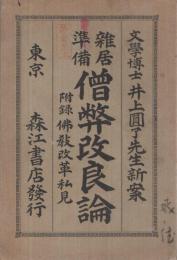 文學博士井上圓了先生新案
雜居
準備
僧弊改良論
附録佛教改革私見
東京 森江書店發行